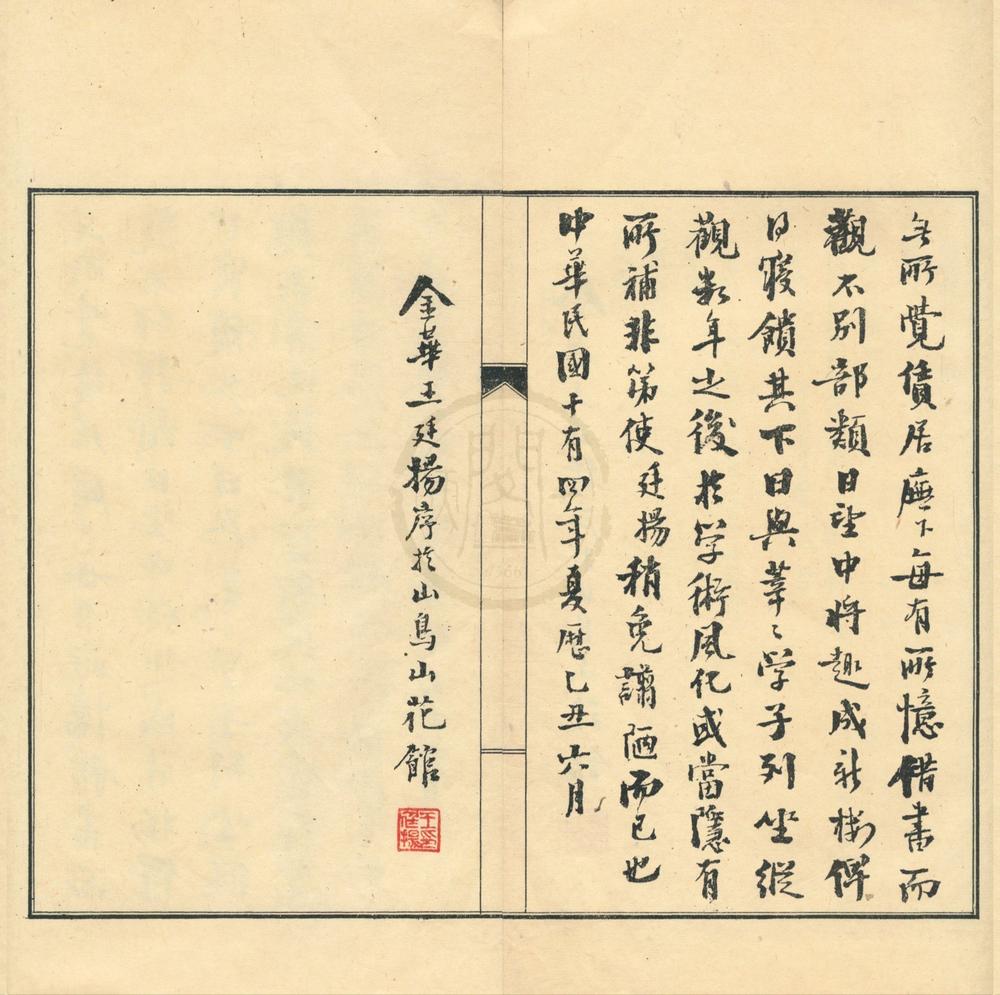 無所覺賃居廡下每有所憶借書而
觀不別部類日望中將趣成新樓俾
日寢饋其下日與莘〻學子列坐縱
觀數年之後於學術風化或當隱有
所補非第使廷揚稍免譾陋而已也
中華民國十有四年夏歷乙丑六月
金華王廷揚序於山鳥山花館
王廷揚